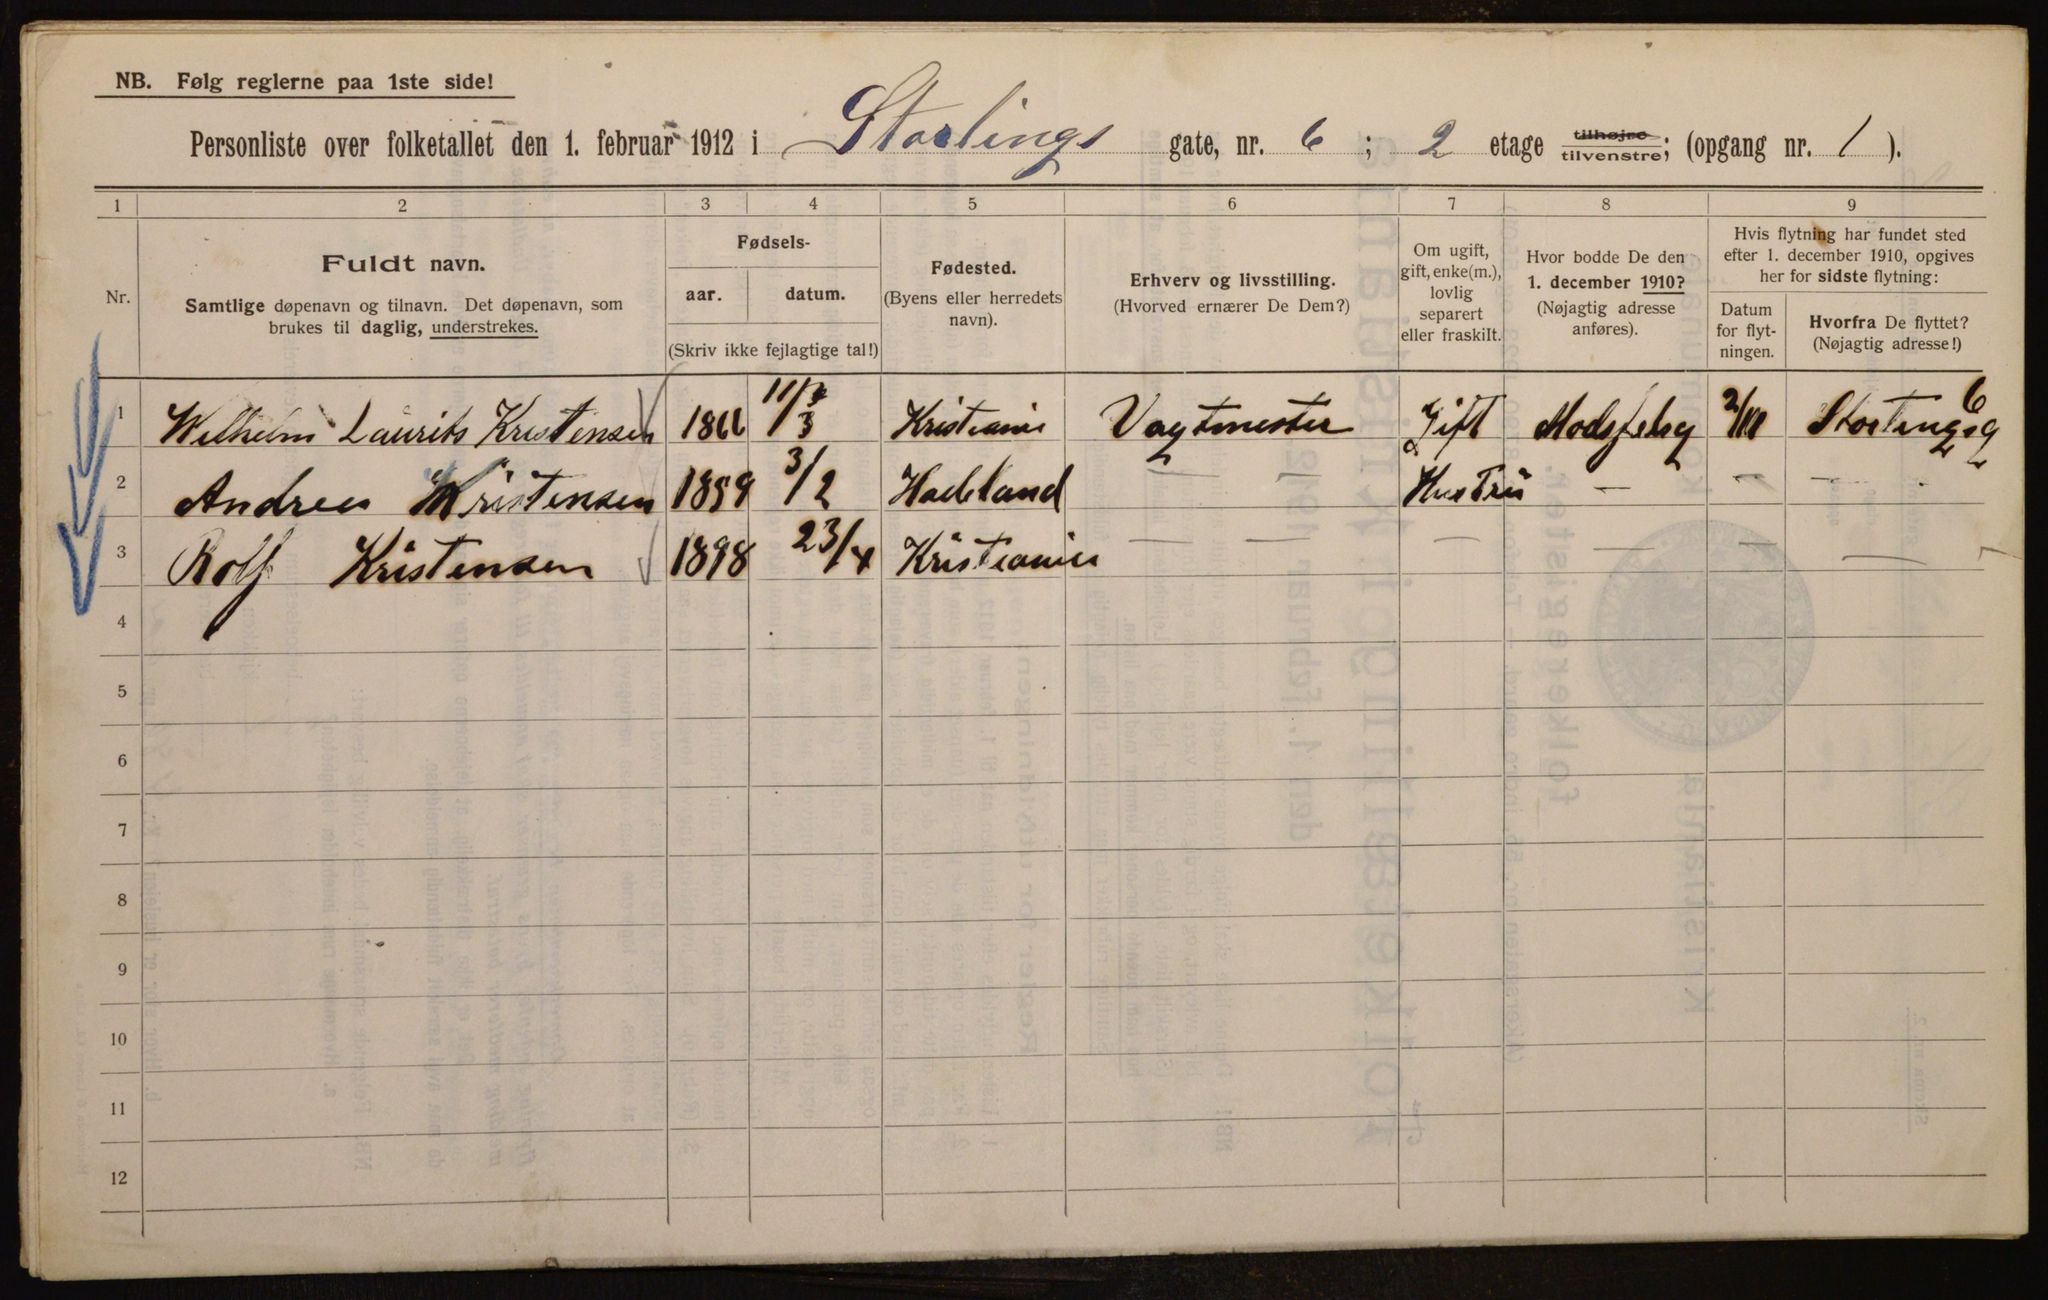 NB. Følg reglerne paa 1ste side!
Personliste over folketallet den 1. februar 1912 i Stortings gate, nr. 6 ; 2 etage tilhøjre tilvenstre; (opgang nr. 1 ).
1 2 3 4 5 6 7 8 9
Nr.
Fuldt navn.
Samtlige døpenavn og tilnavn. Det døpenavn, som
brukes til daglig, understrekes.
Fødsels-
aar. datum.
(Skriv ikke fejlagtige tal!)
Fødested.
(Byens eller herredets
navn).
Erhverv og livsstilling.
(Hvorved ernærer De Dem?)
Om ugift,
gift, enke(m.),
lovlig
separert
eller fraskilt.
Hvor bodde De den
1. december 1910?
(Nøjagtig adresse
anføres).
Hvis flytning har fundet sted
efter 1. december 1910, opgives
her for sidste flytning:
Datum
for flyt-
ningen.
Hvorfra De flyttet?
(Nøjagtig adresse!)
1 Wilhelm Laurits Kristensen 1866 11/3 Kristiania Vagtmester Gift Stortingsg 6
2 Andrea Kristensen 1859 3/2 Hadeland — — Hustru — — —
3 Rolf Kristensen 1898 23/4 Kristiania — — — — — —
4
5
6
7
8
9
10
11
12